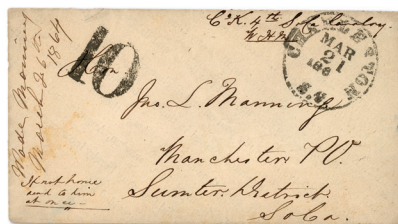 Co K. 4th So Ca Cavalry.
W H M
CHARLESTON
MAR
21
S.C.
10
Wade Manning
March 26th
1864
Hon
Jno. L. Manning
Manchester PO.
Sumter District.
So Ca.
If not home
send to him
at once